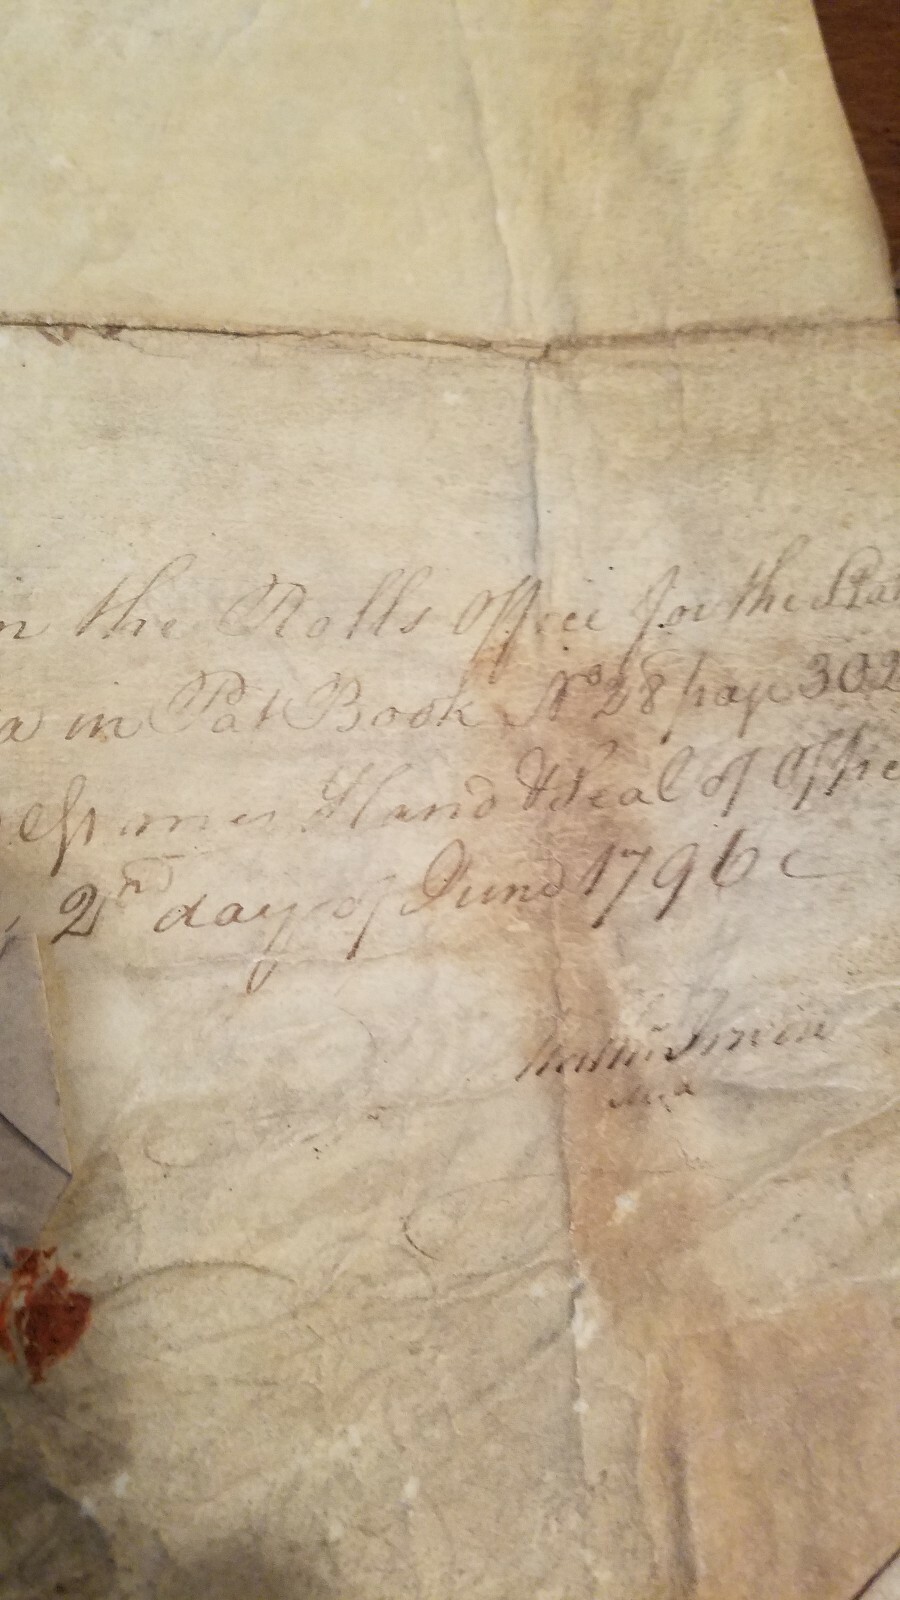 n the Rolls Office for the Sta
a in Pat Book No 28 page 302
Witness my Hand & Seal of Office
2nd day of June 1796
Irvine